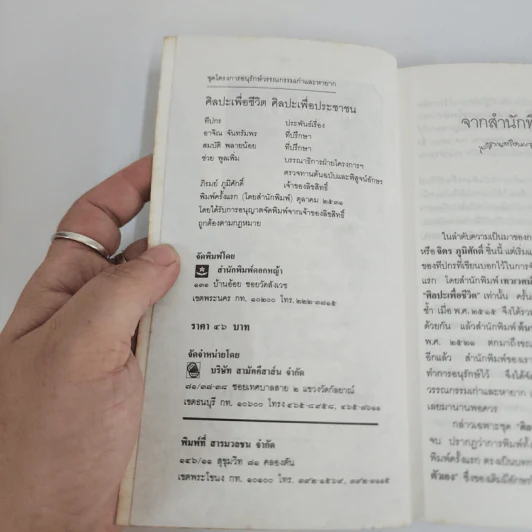 ชุดโครงการอนุรักษ์วรรณกรรมเก่าและหายาก
ศิลปะเพื่อชีวิต ศิลปะเพื่อประชาชน
ทีปกร ประพันธ์เรื่อง
อาจิณ จันทรัมพร ที่ปรึกษา
สมบัติ พลายน้อย ที่ปรึกษา
ช่วย พูลเพิ่ม บรรณาธิการฝ่ายโครงการฯ
ตรวจทานต้นฉบับและพิสูจน์อักษร
ภิรมย์ ภูมิศักดิ์ เจ้าของลิขสิทธิ์
พิมพ์ครั้งแรก (โดยสำนักพิมพ์) ตุลาคม ๒๕๓๑
โดยได้รับการอนุญาตจัดพิมพ์จากเจ้าของลิขสิทธิ์
ถูกต้องตามกฎหมาย
จัดพิมพ์โดย
สำนักพิมพ์ดอกหญ้า
๑๓๑ บ้านอ้อย ซอยวัดสังเวช
เขตพระนคร กท. ๑๐๒๐๐ โทร.
ราคา ๔๖ บาท
จัดจำหน่ายโดย
บริษัท สามัคคีสาส์น จำกัด
ซอยเทศบาลสาย ๒ แขวงวัดกัลยาณ์
เขตธนบุรี กท. ๑๐๖๐๐
พิมพ์ที่ สารมวลชน จำกัด
๑๔๖/๑๑ สุขุมวิท ๘๑ คลองตัน
เขตพระโขนง กท. ๑๐๑๐๐ โทร.
จากสำนักพิ
ในลำดับความเป็นมาของก
หรือ จิตร ภูมิศักดิ์ ชิ้นนี้ แต่เริ่มแ
ของทีปกรที่เขียนบอกไว้ในการจั
แรก โดยสำนักพิมพ์ เทวเวศม์
"ศิลปะเพื่อชีวิต" เท่านั้น ครั้น
ซ้ำ เมื่อ พ.ศ. ๒๕๑๕ จึงได้รวม
ด้วยกัน แล้วสำนักพิมพ์
พ.ศ. ๒๕๒๑ ตกมาถึงขณ
อีกแล้ว สำนักพิมพ์ของเรา
ทำการอนุรักษ์ไว้ จึงได้จัด
วรรณกรรมเก่าและหายาก เ
เลยมานานพอควร
กล่าวเฉพาะชุด "ศิล
จบ ปรากฏว่าการพิมพ์ทั้ง
พิมพ์ครั้งแรก ตรงเป็นบท
ซึ่งของเดิมมีอักษร